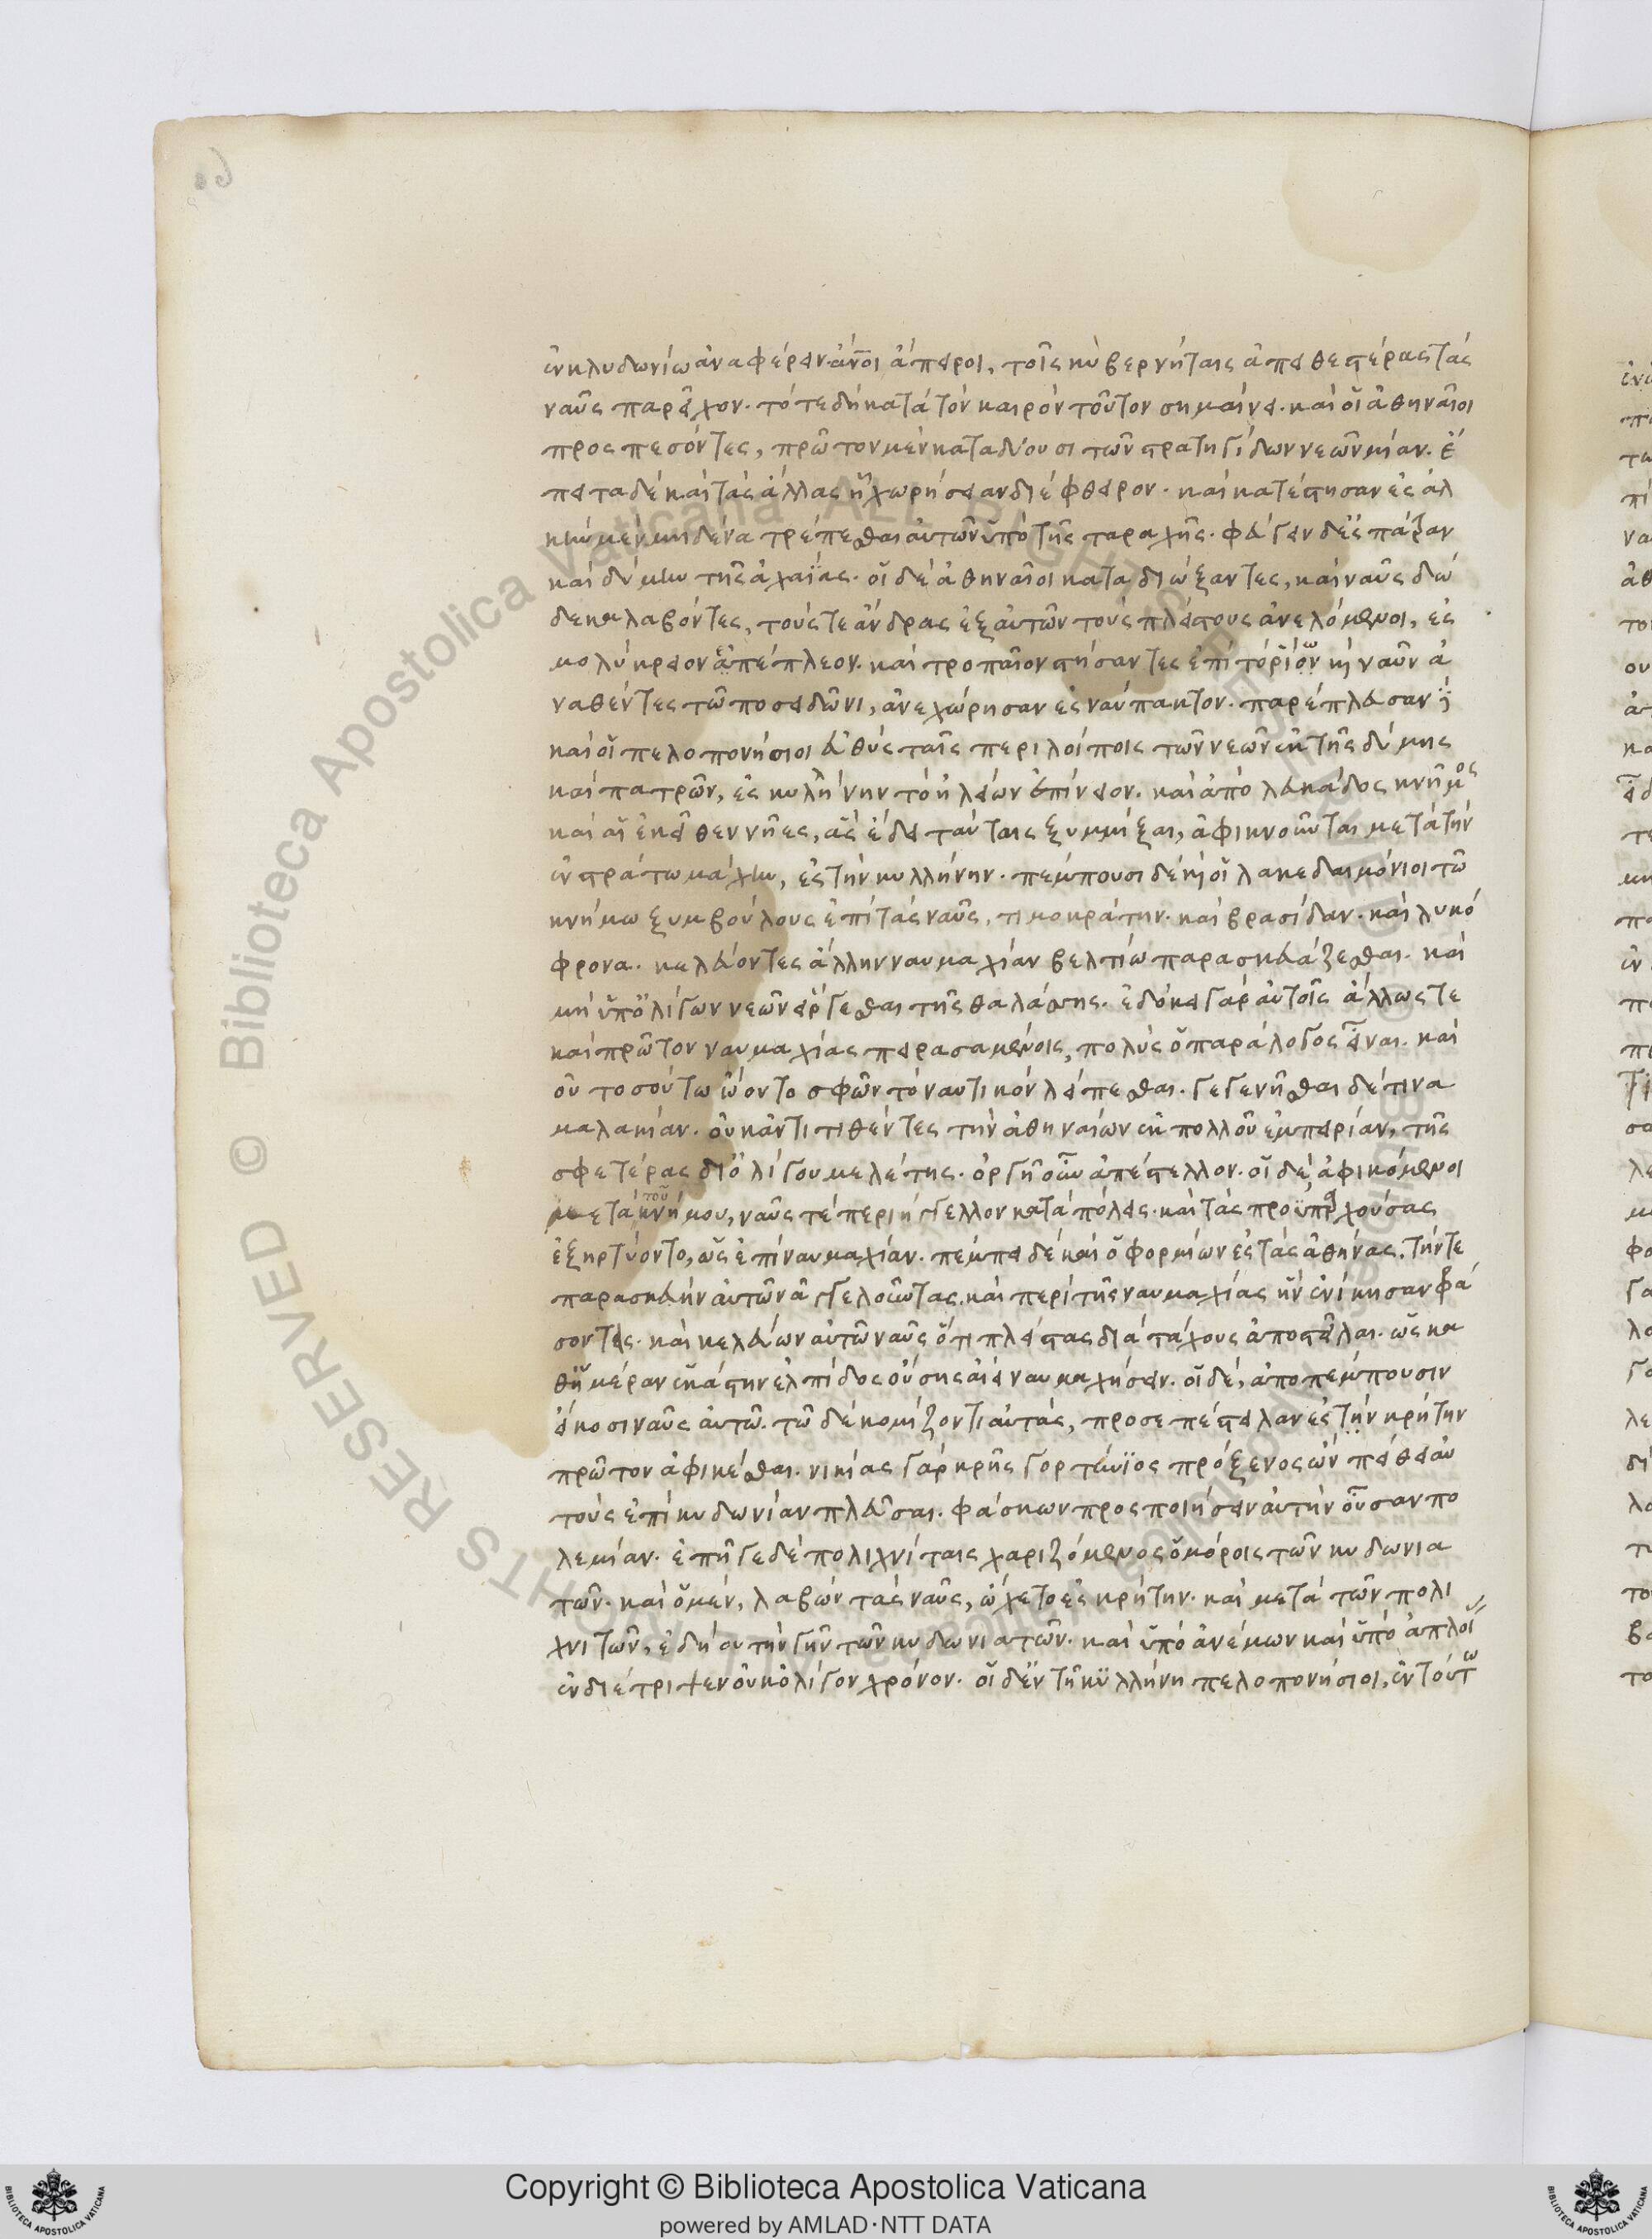 ἐν κλυδωνίω ἀναφέρειν ἄνοι ἄπειροι, τοῖς κυβερνήταις ἀπειθεστέρας τὰς
ναῦς παρεῖχον. τότε δὴ κατὰ τὸν καιρὸν τοῦτον σημαίνει. καὶ οἱ ἀθηναῖοι
προσπεσόντες, πρῶτον μὲν καταδύουσι τῶν στρατηγίδων νεῶν μίαν. ἔ
πειτα δὲ καὶ τὰς ἄλλας ἧ χωρήσειαν διέφθειρον. καὶ κατέστησαν ἐς ἀλ
κὴν μὲν μηδένα τρέπεσθαι αὐτῶν ὑπὸ τῆς ταραχῆς. φεύγειν δὲ ἐς πάτραν
καὶ δύμην τῆς ἀχαΐας. οἱ δὲ ἀθηναῖοι καταδιώξαντες, καὶ ναῦς δώ
δεκα λαβόντες, τούς τε ἄνδρας ἐξ αὐτῶν τοὺς πλείστους ἀνελόμενοι, ἐς
μολύκρειον ἀπέπλεον. καὶ τροπαῖον στήσαντες ἐπὶ τῶ ῥίω καὶ ναῦν ἀ
ναθέντες τῶ ποσειδῶνι, ἀνεχώρησαν ἐς ναύπακτον. παρέπλευσαν δὲ
καὶ οἱ πελοπονήσιοι εὐθὺς ταῖς περιλοίποις τῶν νεῶν ἐκ τῆς δύμης
καὶ πατρῶν, ἐς κυλλήνην τὸ ἠλείων ἐπίνειον. καὶ ἀπὸ λευκάδος κνῆμος
καὶ αἱ ἐκεῖθεν νῆες, ἃς ἔδει ταύταις ξυμμίξαι, ἀφικνοῦνται μετὰ τὴν
ἐν στράτω μάχην, ἐς τὴν κυλλήνην. πέμπουσι δὲ καὶ οἱ λακεδαιμόνιοι τῶ
κνήμω ξυμβούλους ἐπὶ τὰς ναῦς, τιμοκράτην. καὶ βρασίδαν. καὶ λυκό
φρονα. κελεύοντες ἄλλην ναυμαχίαν βελτίω παρασκευάζεσθαι. καὶ
μὴ ὑπ' ὀλίγων νεῶν εἴργεσθαι τῆς θαλάσσης. ἐδόκει γὰρ αὐτοῖς ἄλλως τε
καὶ πρῶτον ναυμαχίας πειρασαμένοις, πολὺς ὁ παράλογος εἶναι. καὶ
οὐ τοσούτω ὤοντο σφῶν τὸ ναυτικὸν λείπεσθαι. γεγενῆσθαι δέ τινα
μαλακίαν. οὐκ ἀντιτιθέντες τὴν ἀθηναίων ἐκ πολλοῦ ἐμπειρίαν, τῆς
σφετέρας δι' ὀλίγου μελέτης. ὀργῆ οὖν ἀπέστελλον. οἱ δὲ ἀφικόμενοι
μετὰ τοῦ κνήμου, ναῦς τε περιήγγελλον κατὰ πόλεις. καὶ τὰς προϋπαρχούσας
ἐξηρτύοντο, ὡς ἐπὶ ναυμαχίαν. πέμπει δὲ καὶ ὁ φορμίων ἐς τὰς ἀθήνας. τήν τε
παρασκευὴν αὐτῶν ἀγγελοῦντας. καὶ περὶ τῆς ναυμαχίας ἣν ἐνίκησαν φρά
σοντας. καὶ κελεύων αὐτῶ ναῦς ὅτι πλείστας διὰ τάχους ἀποστεῖλαι. ὡς κα
θ' ἡμέραν ἑκάστην ἐλπίδος οὔσης αἰεὶ ναυμαχήσειν. οἱ δὲ, ἀποπέμπουσιν
εἴκοσι ναῦς αὐτῶ. τῶ δὲ κομίζοντι αὐτὰς, προσεπέστειλαν ἐς τὴν κρήτην
πρῶτον ἀφικέσθαι. νικίας γὰρ κρὴς γορτύνιος πρόξενος ὢν πείθει αὐ
τοὺς ἐπὶ κυδωνίαν πλεῦσαι. φάσκων προσποιήσειν αὐτὴν οὖσαν πο
λεμίαν. ἐπῆγε δὲ πολιχνίταις χαριζόμενος ὁμόροις τῶν κυδωνια
τῶν. καὶ ὁ μέν, λαβὼν τὰς ναῦς, ὤχετο ἐς κρήτην. καὶ μετὰ τῶν πολι
χνιτῶν, ἐδήου τὴν γῆν τῶν κυδωνιατῶν. καὶ ὑπὸ ἀνέμων καὶ ὑπὸ ἀπλοί
ενδιέτριψεν οὐκ ὀλίγον χρόνον. οἱ δ' ἐν τῆ κυλλήνη πελοπονήσιοι, ἐν τούτω
Copyright © Biblioteca Apostolica Vaticana
powered by AMLAD·NTT DATA